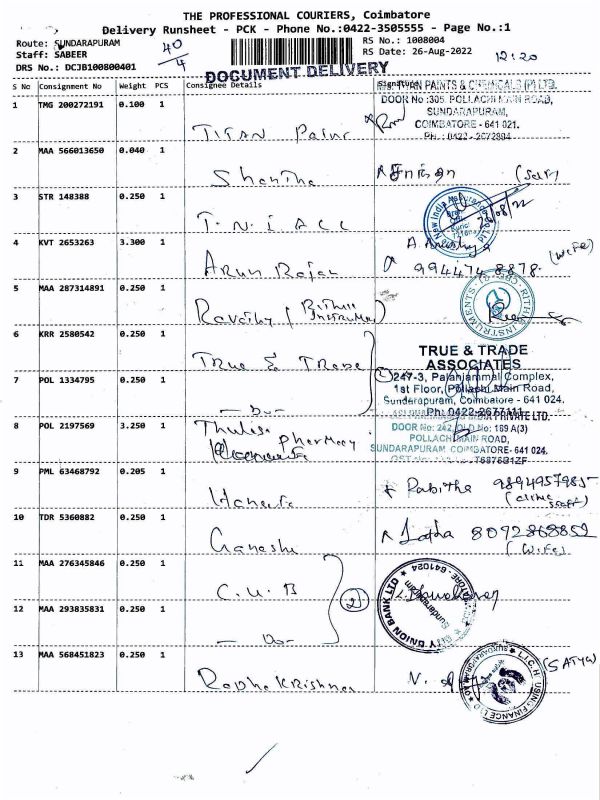 THE PROFESSIONAL COURIERS, Coimbatore
Delivery Runsheet - PCK - Phone No.:0422-3505555 - Page No.:1
Route: SUNDARAPURAM
Staff: SABEER
DRS No.: DCJB100800401
40/4
RS No.: 1008004
RS Date: 26-Aug-2022
12:20
DOCUMENT DELIVERY
S No Consignment No Weight PCS Consignee Details Signature
1 TMG 200272191 0.100 1
TITAN Paint
TITAN PAINTS & CHEMICALS (P) LTD.
DOOR No:305, POLLACHI MAIN ROAD,
SUNDARAPURAM,
COIMBATORE - 641 021.
2 MAA 566013650 0.040 1
Shantha
(Self)
3 STR 148388 0.250 1
T.N.I ACC
New India Assurance
26/08/22
4 KVT 2653263 3.300 1
Arun Rajan
994474 8878.
(Wife)
5 MAA 287314891 0.250 1
Revathy (Rithu Instrument)
INSTRUMENTS
6 KRR 2580542 0.250 1
True & Trade
TRUE & TRADE
ASSOCIATES
7 POL 1334795 0.250 1
- Do -
2
247-3, Palanjammal Complex,
1st Floor, Pollachi Main Road,
Sundarapuram, Coimbatore - 641 024.
Ph: 0422-2677111
8 POL 2197569 3.250 1
Thulasi Pharmacy
PRIVATE LIMITED.
DOOR No: 242, OLD No: 189 A(3)
POLLACHI MAIN ROAD,
SUNDARAPURAM COIMBATORE- 641 024.
9 PML 63468792 0.205 1
Pabitha
(clinic staff)
10 TDR 5360882 0.250 1
Ganeshu
Latha
(Wife)
11 MAA 276345846 0.250 1
C.U.B
CITY UNION BANK LTD
Sundarapuram
12 MAA 293835831 0.250 1
- Do -
2
13 MAA 568451823 0.250 1
Radha Krishnan
(SATYA)